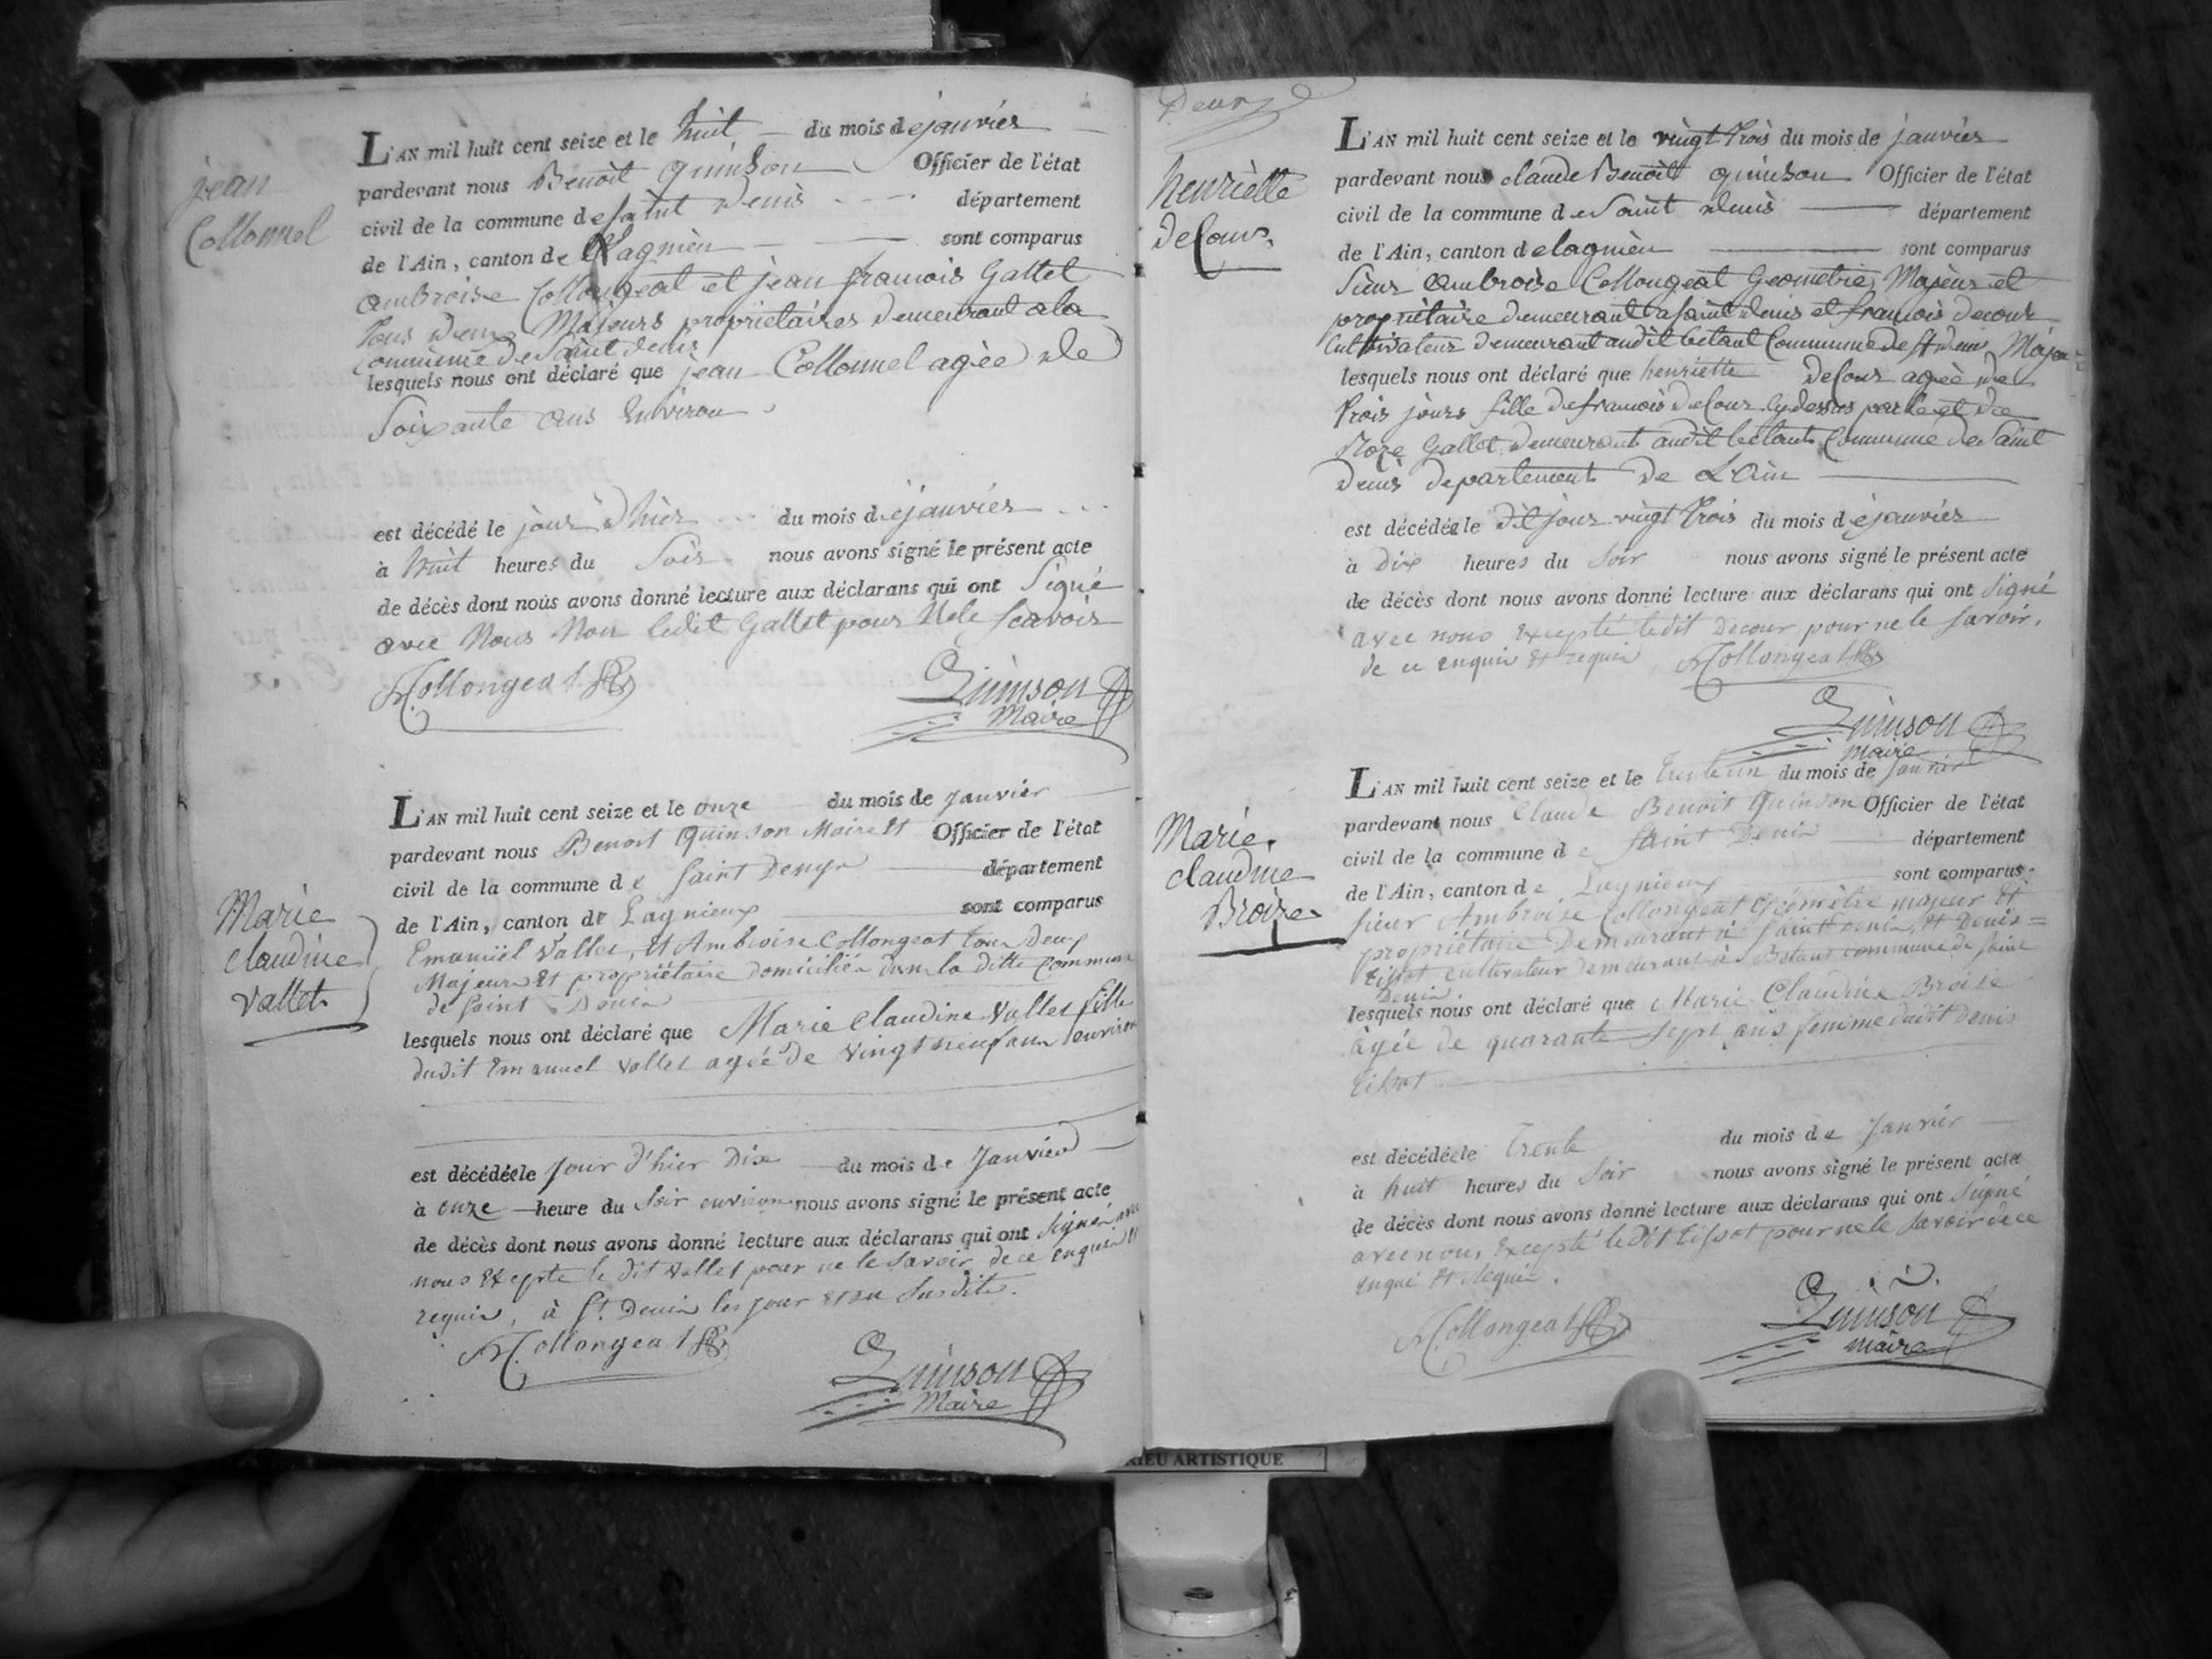 jean
Collonnel
L'AN mil huit cent seize et le huit du mois de janvier
pardevant nous Benoît quinson Officier de l'état
civil de la commune de saint denis département
de l'Ain, canton de Lagnieu sont comparus
ambroise Collongeat et jean francois Gallet
tous deux Majeurs propriétaires demeurant a la
commune de Saint denis
lesquels nous ont déclaré que jean Collonnel agée de
Soixante ans Environ
est décédé le jour d'hier du mois de janvier
à huit heures du Soir nous avons signé le présent acte
de décès dont nous avons donné lecture aux déclarans qui ont Signé
avec Nous Non ledit Gallet pour Nele scavoir
Collongeat
Quinson
Maire
Marie
claudine
vallet
L'AN mil huit cent seize et le onze du mois de Janvier
pardevant nous Benoit Quinson Maire et Officier de l'état
civil de la commune de Saint Denys département
de l'Ain, canton de Lagnieux sont comparus
Emanuël Vallet, et Ambroise Collongeat tous deux
Majeurs et propriétaire domiciliés dans la ditte Commune
de saint Denis
lesquels nous ont déclaré que Marie Claudine Vallet fille
dudit Emanuel vallet agéé de vingt neuf ans environ
est décédée le Jour d'hier Dix du mois de Janvier
à onze heure du Soir environ nous avons signé le présent acte
de décès dont nous avons donné lecture aux déclarans qui ont Signés avec
nous Excepté le dit vallet pour ne le savoir de ce enquis et
requis, à St. Denis les jour et an susdits.
Collongeat
Quinson
Maire
henriette
deCour
L'AN mil huit cent seize et le vingt trois du mois de janvier
pardevant nous claude Benoît quinson Officier de l'état
civil de la commune de Saint denis département
de l'Ain, canton de lagnieu sont comparus
Sieur ambroise Collongeat Geometre Majeur et
propriétaire demeurant a saint denis et francois decour
Cultivateur demeurant audit betant Commune de st denis Majeur
lesquels nous ont déclaré que henriette deCour agée de
trois jours fille de francois deCour cydessus parlé et de
Roze Gallet demeurant audit betant Commune de Saint
denis departement de L'Ain
est décédée le dit jour vingt trois du mois de janvier
à dix heures du soir nous avons signé le présent acte
de décès dont nous avons donné lecture aux déclarans qui ont signé
avec nous excepté ledit Decour pour ne le savoir,
de ce enquis et requis Collongeat
Quinson
maire
Marie
claudine
Broize
L'AN mil huit cent seize et le trente un du mois de Janvier
pardevant nous Claude Benoit Quinson Officier de l'état
civil de la commune de Saint Denis département
de l'Ain, canton de Lagnieux sont comparus
sieur Ambroise Collongeat Géomètre majeur et
propriétaire Demeurant à Saint Denis, et Denis
tissot cultivateur demeurant à Betant commune de saint
Denis
lesquels nous ont déclaré que Marie Claudine Broise
âgée de quarante sept ans femme dudit Denis
tissot
est décédée le trente du mois de Janvier
à huit heures du Soir nous avons signé le présent acte
de décès dont nous avons donné lecture aux déclarans qui ont signé
avec nous excepté le dit tissot pour ne le savoir de ce
enquis et requis.
Collongeat
Quinson
maire
RIEU ARTISTIQUE